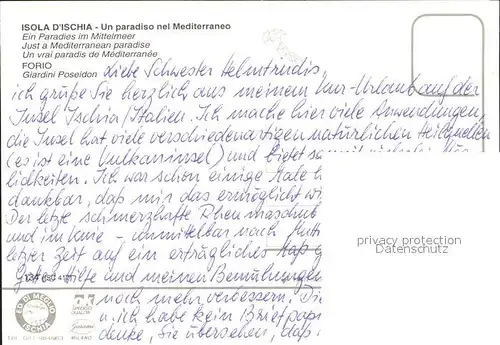 ISOLA D'ISCHIA - Un paradiso nel Mediterraneo
Ein Paradies im Mittelmeer
Just a Mediterranean paradise
Un vrai paradis de Méditerranée
FORIO
Giardini Poseidon
Liebe Schwester Helmtrudis,
ich grüße Sie herzlich aus meinem Kur-Urlaub auf der
Insel Ischia/Italien. Ich mache hier viele Anwendungen,
die Insel hat viele verschiedenartigen natürlichen Heilquellen
(es ist eine Vulkaninsel) und bietet somit
lichkeiten. Ich war schon einige Male h
dankbar, daß mir das ermöglicht wi
Der letzte schmerzhafte Rheumaschub
und im Knie - unmittelbar nach
letzter Zeit auf ein erträgliches Maß g
Gottes Hilfe und meinen Bemühungen
noch mehr verbessern. Die
u. ich habe kein Briefpap
denke, Sie übersehen, daß
privacy protection
Datenschutz
ED. DI MEGLIO
ISCHIA
MILANO